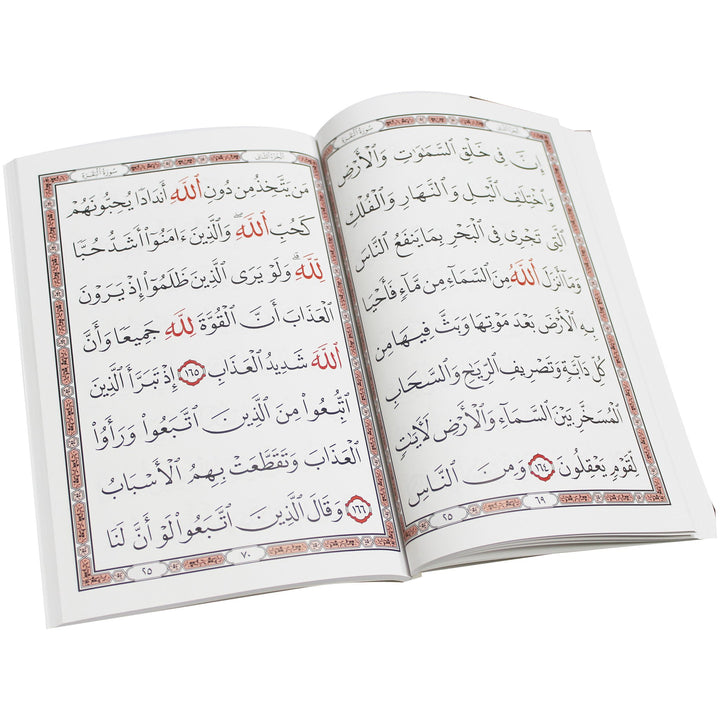 سورة البقرة
الجزء الثاني
إِنَّ فِي خَلْقِ ٱلسَّمَٰوَٰتِ وَٱلْأَرْضِ
وَٱخْتِلَٰفِ ٱلَّيْلِ وَٱلنَّهَارِ وَٱلْفُلْكِ
ٱلَّتِي تَجْرِي فِي ٱلْبَحْرِ بِمَا يَنفَعُ ٱلنَّاسَ
وَمَآ أَنزَلَ ٱللَّهُ مِنَ ٱلسَّمَآءِ مِن مَّآءٍ فَأَحْيَا
بِهِ ٱلْأَرْضَ بَعْدَ مَوْتِهَا وَبَثَّ فِيهَا مِن
كُلِّ دَآبَّةٍ وَتَصْرِيفِ ٱلرِّيَٰحِ وَٱلسَّحَابِ
ٱلْمُسَخَّرِ بَيْنَ ٱلسَّمَآءِ وَٱلْأَرْضِ لَأٓيَٰتٍ
لِّقَوْمٍ يَعْقِلُونَ ١٦٤ وَمِنَ ٱلنَّاسِ
٦٩
٢٥
سورة البقرة
الجزء الثاني
مَن يَتَّخِذُ مِن دُونِ ٱللَّهِ أَندَادًا يُحِبُّونَهُمْ
كَحُبِّ ٱللَّهِ ۖ وَٱلَّذِينَ ءَامَنُوٓا۟ أَشَدُّ حُبًّا
لِّلَّهِ ۗ وَلَوْ يَرَى ٱلَّذِينَ ظَلَمُوٓا۟ إِذْ يَرَوْنَ
ٱلْعَذَابَ أَنَّ ٱلْقُوَّةَ لِلَّهِ جَمِيعًا وَأَنَّ
ٱللَّهَ شَدِيدُ ٱلْعَذَابِ ١٦٥ إِذْ تَبَرَّأَ ٱلَّذِينَ
ٱتُّبِعُوا۟ مِنَ ٱلَّذِينَ ٱتَّبَعُوا۟ وَرَأَوُا۟
ٱلْعَذَابَ وَتَقَطَّعَتْ بِهِمُ ٱلْأَسْبَابُ
١٦٦ وَقَالَ ٱلَّذِينَ ٱتَّبَعُوا۟ لَوْ أَنَّ لَنَا
٧٠
٢٥